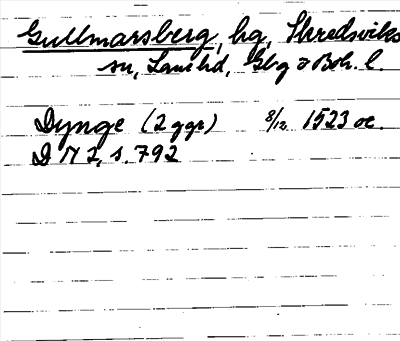 Gullmarsberg, hg, Skredsviks
sn, Lane hd, Gbg o Boh. l.
Dynge (2 ggr) 8/12 1523 oc.
D N 2, s. 792